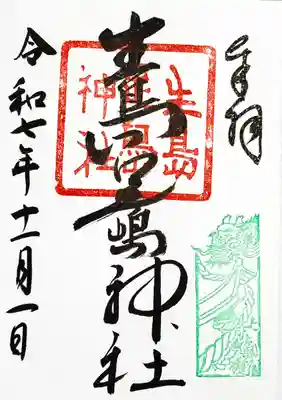 奉拝
生島足嶋神社
生島
足島
神社
令和七年十一月一日